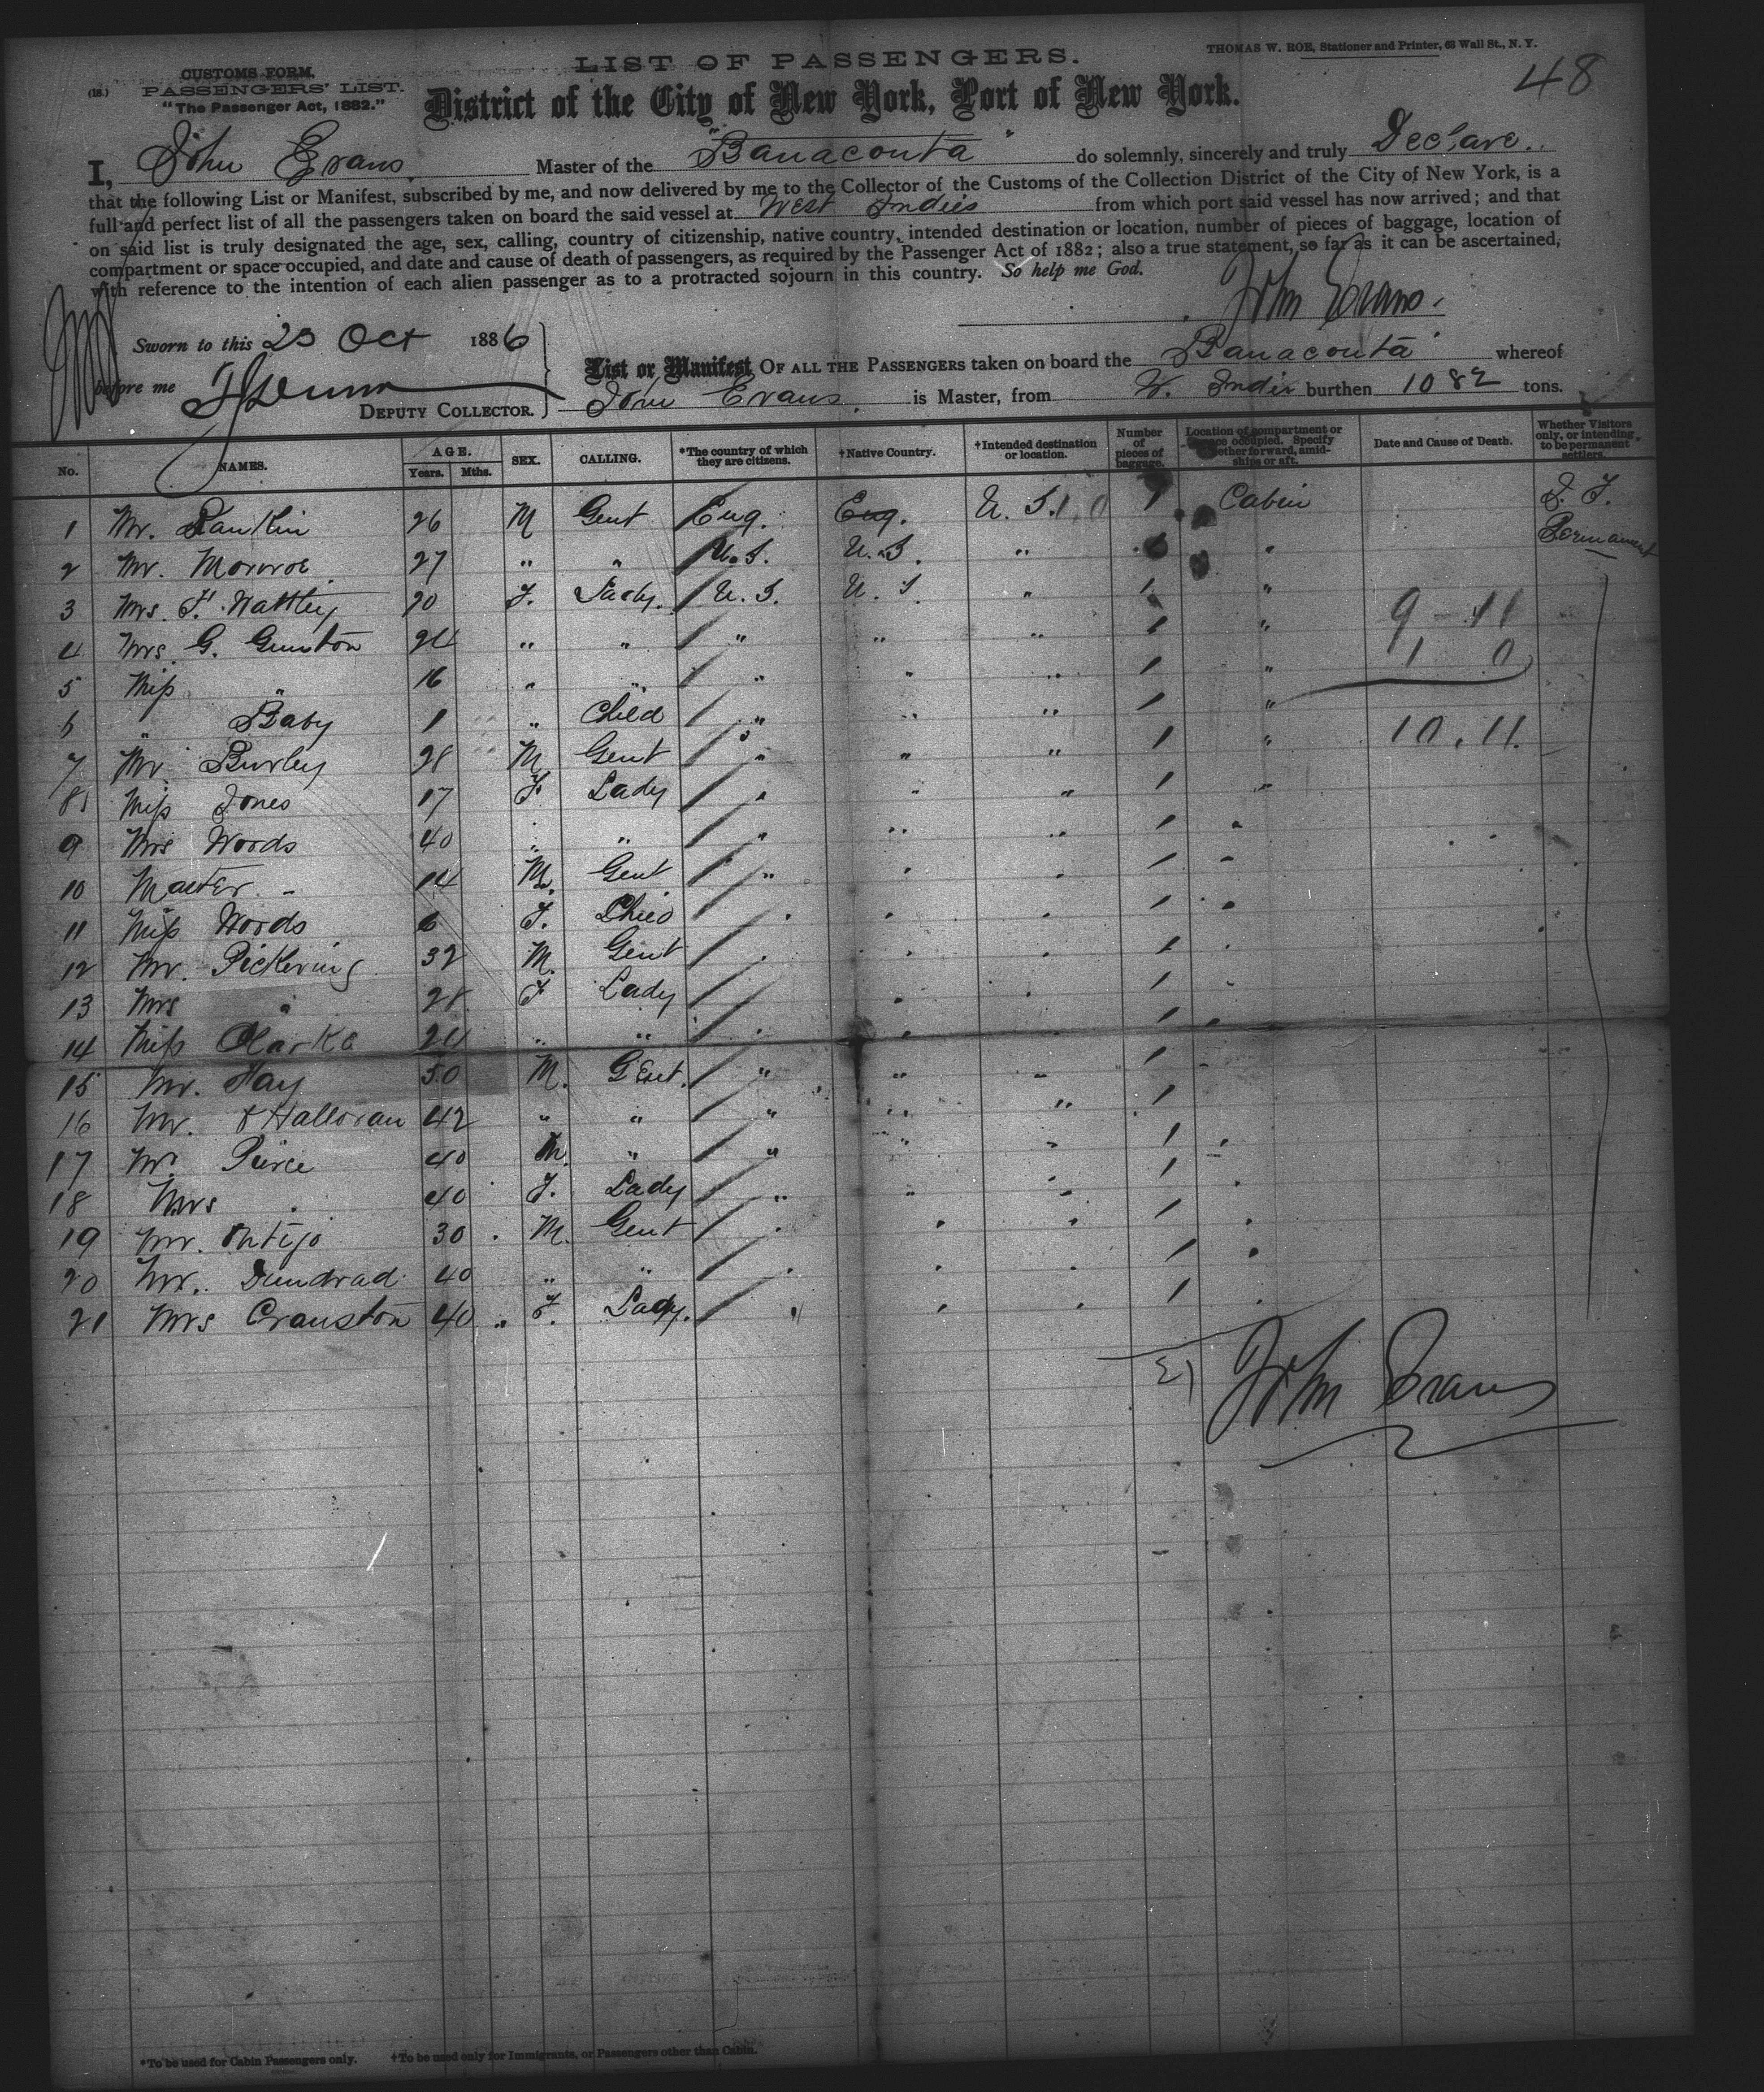 THOMAS W. ROE, Stationer and Printer, 63 Wall St., N. Y.
48
LIST OF PASSENGERS.
CUSTOMS FORM.
(18.) PASSENGERS' LIST.
"The Passenger Act, 1882."
District of the City of New York, Port of New York.
I, John Evans. Master of the "Banaconta" do solemnly, sincerely and truly Declare.
that the following List or Manifest, subscribed by me, and now delivered by me to the Collector of the Customs of the Collection District of the City of New York, is a
full and perfect list of all the passengers taken on board the said vessel at West Indies from which port said vessel has now arrived; and that
on said list is truly designated the age, sex, calling, country of citizenship, native country, intended destination or location, number of pieces of baggage, location of
compartment or space occupied, and date and cause of death of passengers, as required by the Passenger Act of 1882; also a true statement, so far as it can be ascertained,
with reference to the intention of each alien passenger as to a protracted sojourn in this country. So help me God.
John Evans.
Sworn to this 23 Oct 1886
before me
DEPUTY COLLECTOR.
List or Manifest OF ALL THE PASSENGERS taken on board the Banaconta whereof
John Evans. is Master, from W. Indies burthen 1082 tons.
No. NAMES. AGE. Years. Mths. SEX. CALLING. *The country of which they are citizens. †Native Country. †Intended destination or location. Number of pieces of baggage. Location of compartment or space occupied. Specify whether forward, amidships or aft. Date and Cause of Death. Whether Visitors only, or intending to be permanent settlers.
1 Mr. Rankin 26 M Gent Eng. Eng. U.S. 1 Cabin
Permanent
2 Mr. Monroe 27 " " U.S. U.S. " "
3 Mrs. F. Wattley 20 F. Lady. U.S. U.S. " 1 "
4 Mrs. G. Gunston 24 " " " " " 1 "
5 Miss " 16 " " " " " 1 "
6 " Baby 1 " Child " " " 1 "
7 Mr. Burley 28 M Gent " " " 1 "
8 Miss Jones 17 F Lady " " " 1 "
9 Mrs Woods 40 " " " " " 1 "
10 Master " 14 M. Gent " " " 1 "
11 Miss Woods 6 F. Child " " " 1 "
12 Mr. Pickering 32 M. Gent " " " 1 "
13 Mrs " 28 F Lady " " " 1 "
14 Miss Clarke 24 " " " " " 1 "
15 Mr. Hay 50 M. Gent. " " " 1 "
16 Mr. O'Halloran 42 " " " " " 1
17 Mr. Pierce 40 M. " " " " 1 "
18 Mrs " 40 F. Lady " " " 1 "
19 Mr. 30 M. Gent " " " 1 "
20 Mr. Dundrad 40 " " " " 1 "
21 Mrs Cranston 40 F. Lady. " " " 1 "
9 - 11
1 0
10. 11.
21 John Evans
*To be used for Cabin Passengers only. †To be used only for Immigrants, or Passengers other than Cabin.